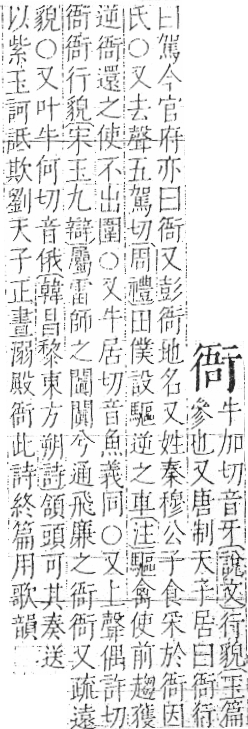 衙
牛加切音牙說文行貌玉篇
參也又唐制天子居曰衙行
曰駕今官府亦曰衙又彭衙地名又姓秦穆公子食采於衙因
氏○又去聲五駕切周禮田僕設驅逆之車注驅禽使前趨獲
逆衙還之使不出圍○又牛居切音魚義同○又上聲偶許切
衙衙行貌宋玉九辯屬雷師之闐闐兮通飛廉之衙衙又疏遠
貌○又叶牛何切音俄韓昌黎東方朔詩頷頭可其奏送
以紫玉訶詆欺劉天子正晝溺殿衙此詩終篇用歌韻